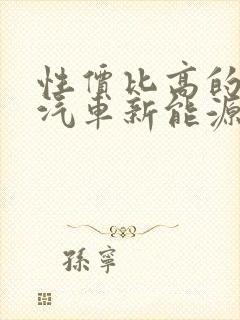 性價比高的
汽車新能源
孫寧